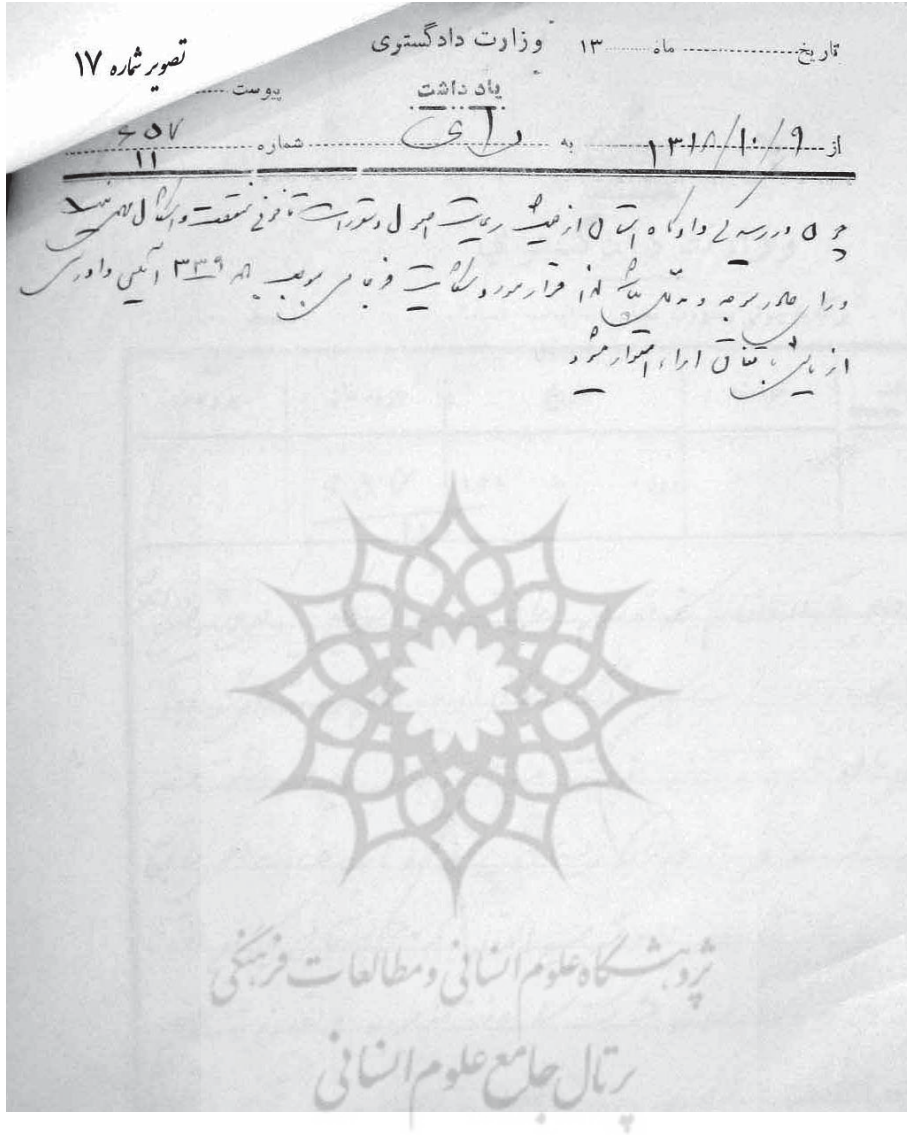 تصویر شماره ۱۷
تاریخ ماه ۱۳ وزارت دادگستری
یادداشت پیوست
از ۱۳۱۸/۱۰/۹ به رای شماره ۶۵۷
۱۱
چون در رسیدگی دادگاه استان از حیث رعایت اصول و دستورات قانونی منقصت و اشکال مهمی نیست
و رای صادر موجه و مدلل لذا قرار مورد شکایت فرجامی بموجب ماده ۳۳۹ آئین دادرسی
از باتفاق آراء استوار میشود
پژوهشگاه علوم انسانی و مطالعات فرهنگی
پرتال جامع علوم انسانی